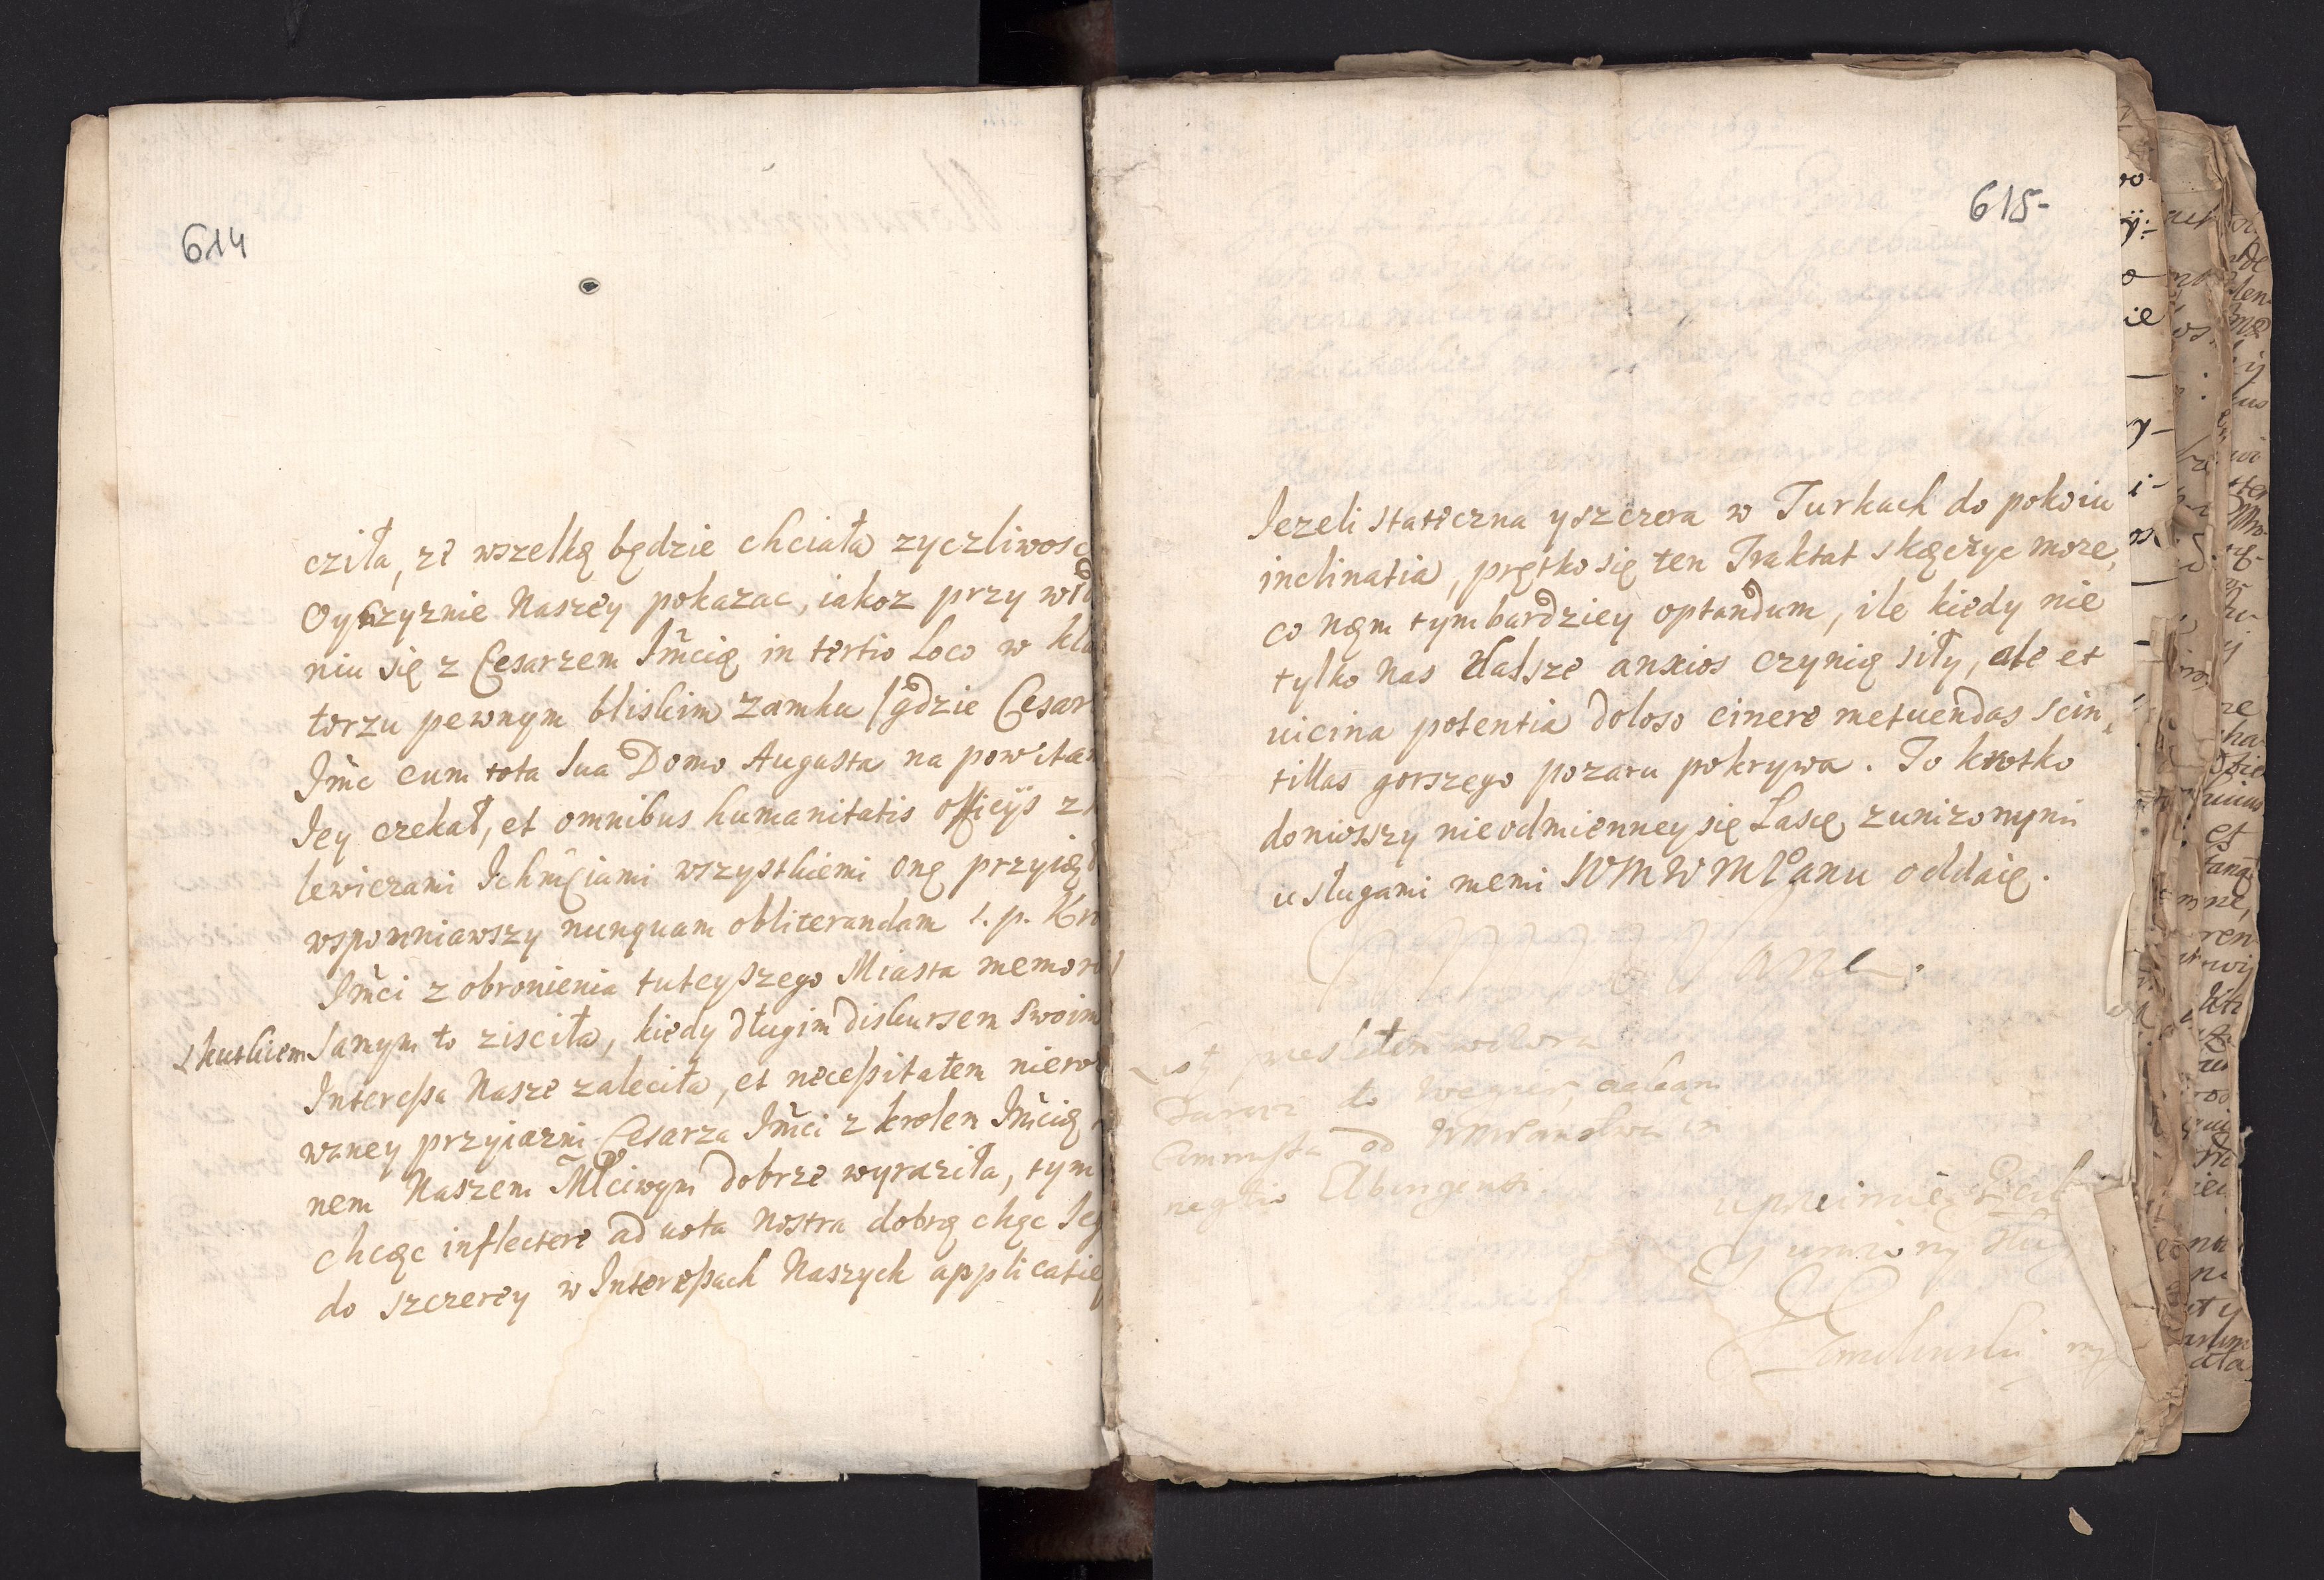 614
cziła, zė wszelką będzie chciała zyczliwosc
Oyczyznie Naszey pokazac, iakoz przy wi
niu się z Cesarzem Jm̃cią in tertio Loco w kla
torzu pewnym bliskim zamku (gdzie Cesar
Jm̃c cum tota sua Domo Augusta na powitan
Jey czekał, et omnibus humanitatis officijs z
lewiczami Ichm̃ciami wszystkiemi onę przyiął
wspomniawszy nunquam obliterandam s. p. Kr
Jm̃ci z obronienia tuteyszego Miasta memor
skutkiem samym to zisciła, kiedy długim diskursem swoim
Interessa Nasze zaleciła, et necessitatem niero
waney przyiazni Cesarza Jm̃ci z krolem Jm̃cią
nem Naszem Młciwym dobrze wyraziła, tym
chcąc inflectere ad uota nostra dobrą chęc Jey
do szczerey w Interessach Naszych applicatię
615-
Jezeli stateczna y szczera w Turkach do pokoiu
inclinatia, prętko się ten Traktat skączyc moze,
co nąm tym bardziey optandum, ile kiedy nie
tylko nas dalsze anxios czynią siły, ale et
uicina potentia doloso cinere metuendas scin,
tillas gorszego pozaru pokrywa. To krotko
doniosszy nieodmienney się Łasce z unizonymi
usługami memi WMWMPanu oddaię.
List przesłałem
do Węgier,
od WMPanstwa in
negotio Elbingensi.
uprzeimie
y unizony słu
mp